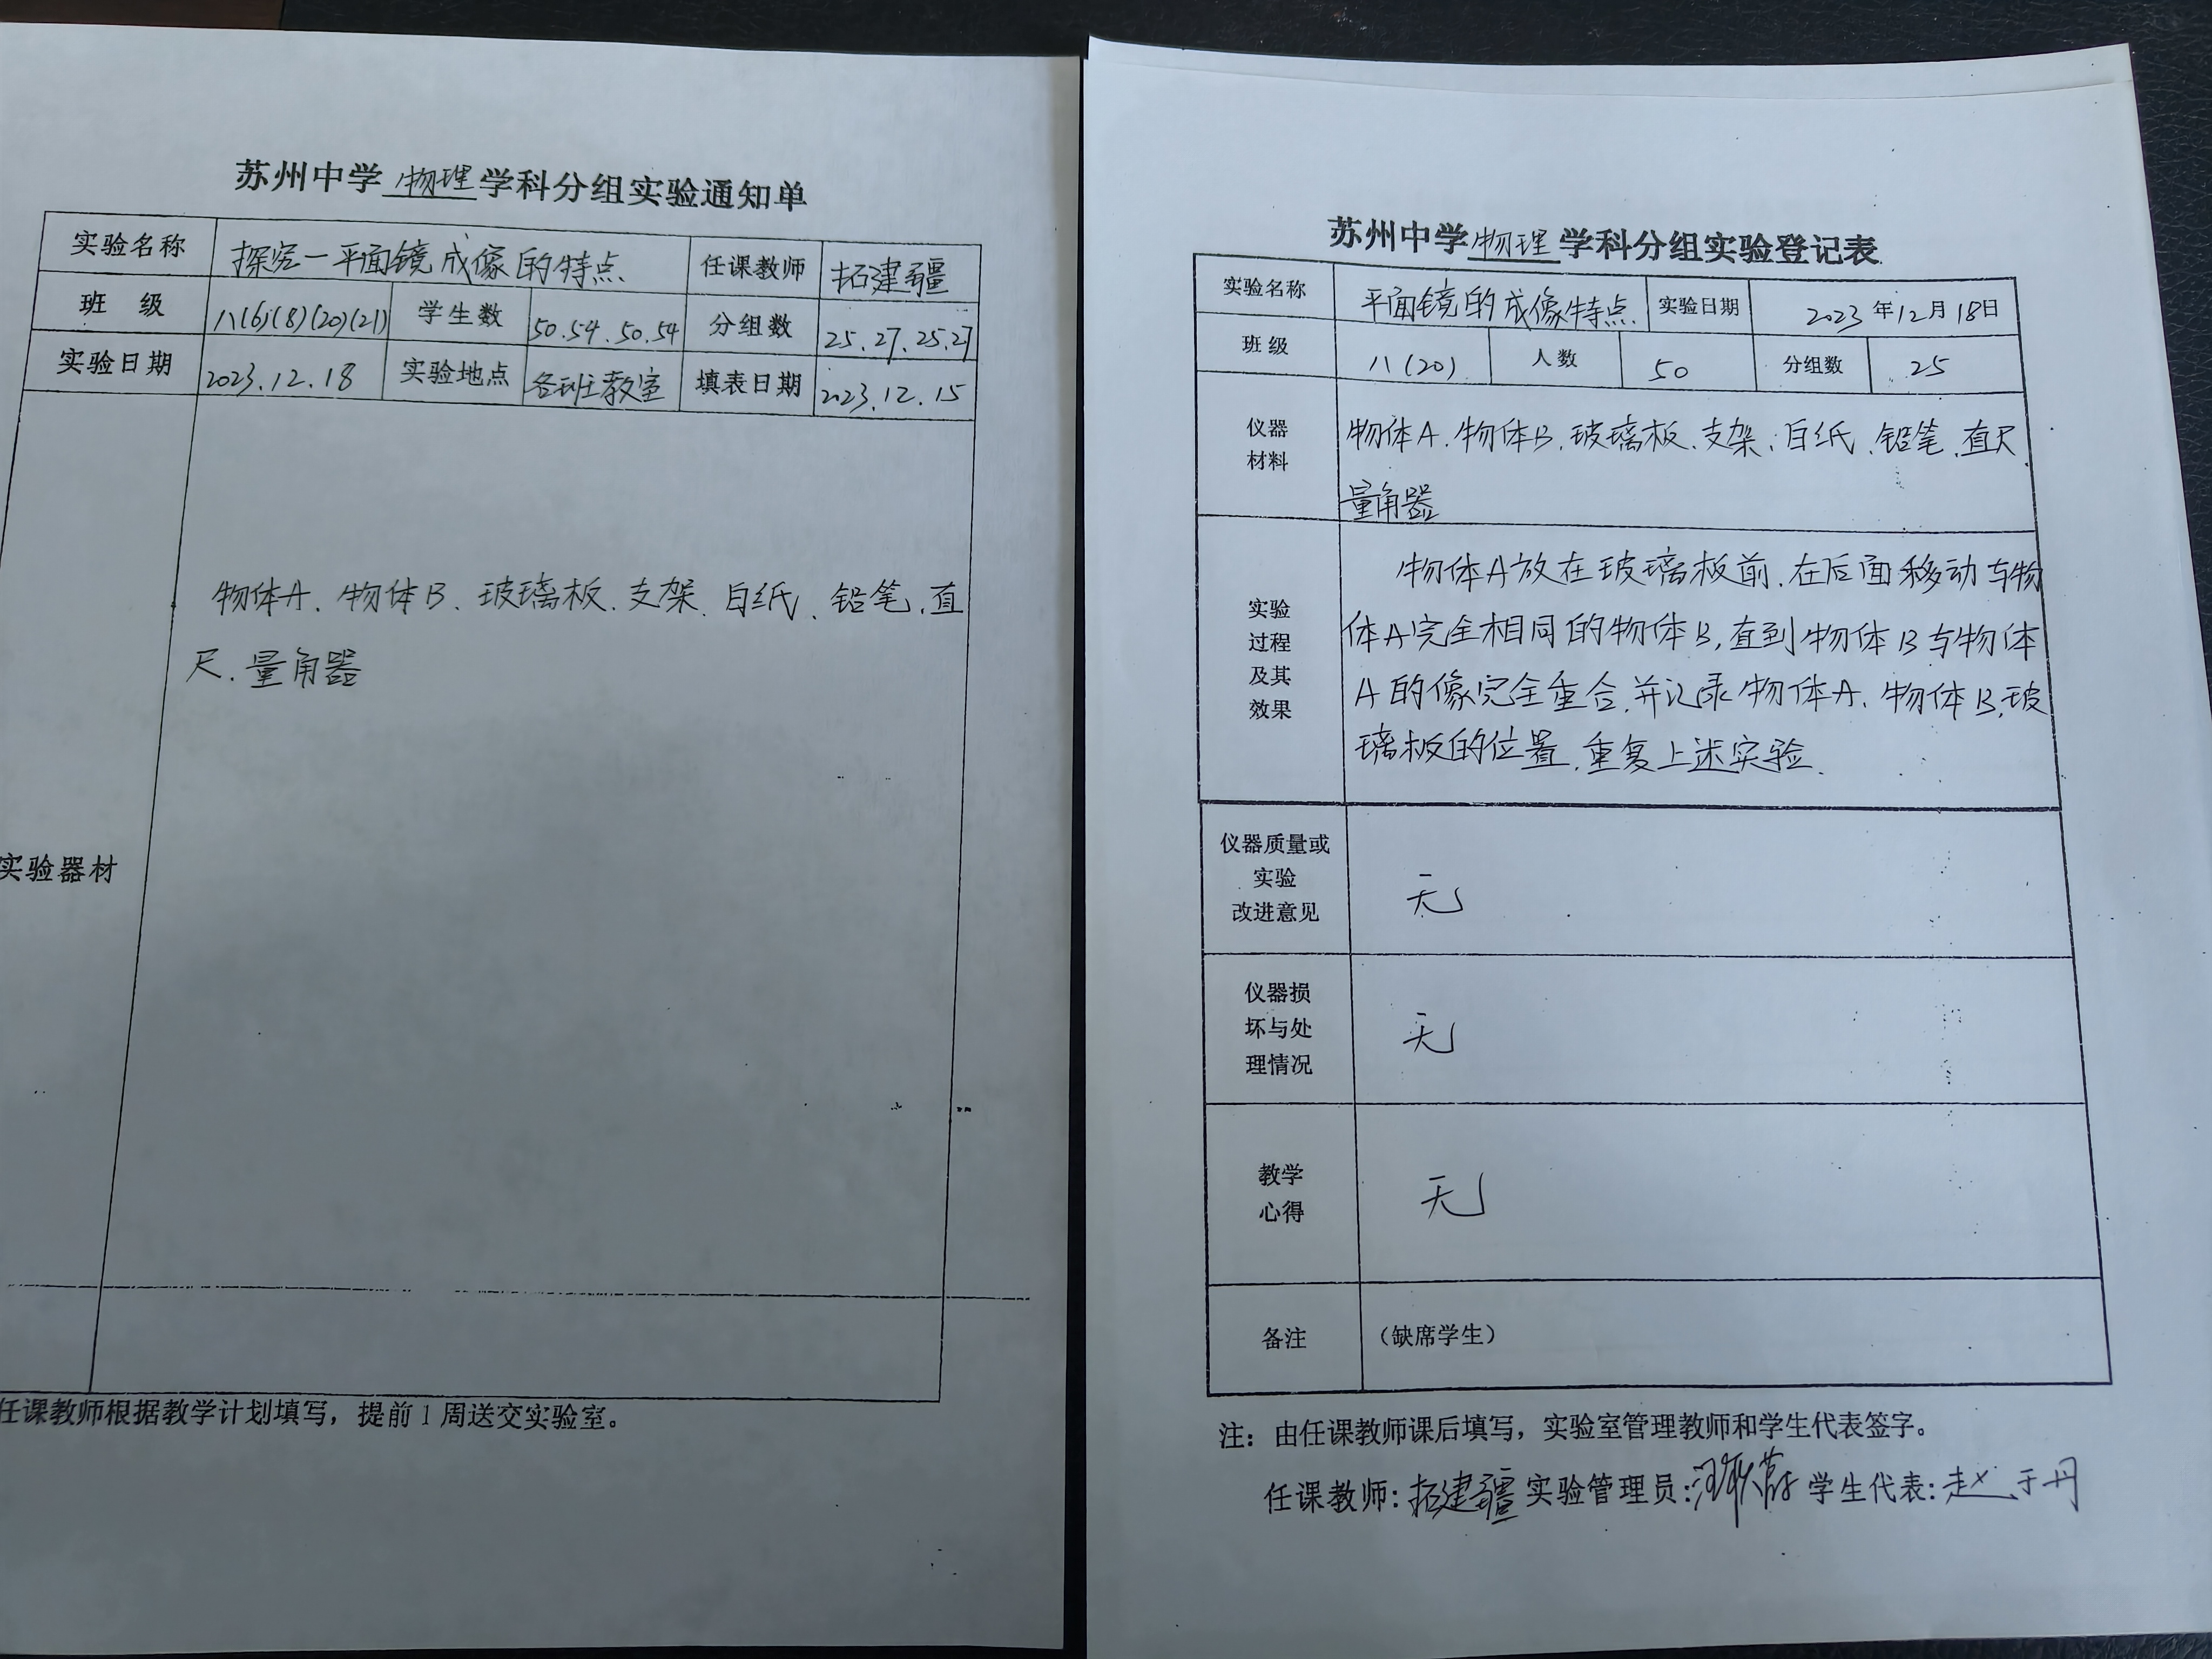 苏州中学物理学科分组实验通知单
实验名称 探究一平面镜成像的特点 任课教师 拓建疆
班 级 八(6)(8)(20)(21) 学生数 50.54.50.54 分组数 25.27.25.27
实验日期 2023.12.18 实验地点 各班教室 填表日期 2023.12.15
实验器材
物体A、物体B、玻璃板、支架、白纸、铅笔、直
尺、量角器
任课教师根据教学计划填写，提前1周送交实验室。
苏州中学物理学科分组实验登记表
实验名称 平面镜的成像特点 实验日期 2023年12月18日
班 级 八(20) 人数 50 分组数 25
仪器
材料
物体A、物体B、玻璃板、支架、白纸、铅笔、直尺
量角器
实验
过程
及其
效果
物体A放在玻璃板前，在后面移动与物
体A完全相同的物体B，直到物体B与物体
A的像完全重合，并记录物体A、物体B、玻
璃板的位置，重复上述实验。
仪器质量或
实验
改进意见
无
仪器损
坏与处
理情况
无
教学
心得
无
备注 （缺席学生）
注：由任课教师课后填写，实验室管理教师和学生代表签字。
任课教师：拓建疆 实验管理员： 学生代表：赵于丹